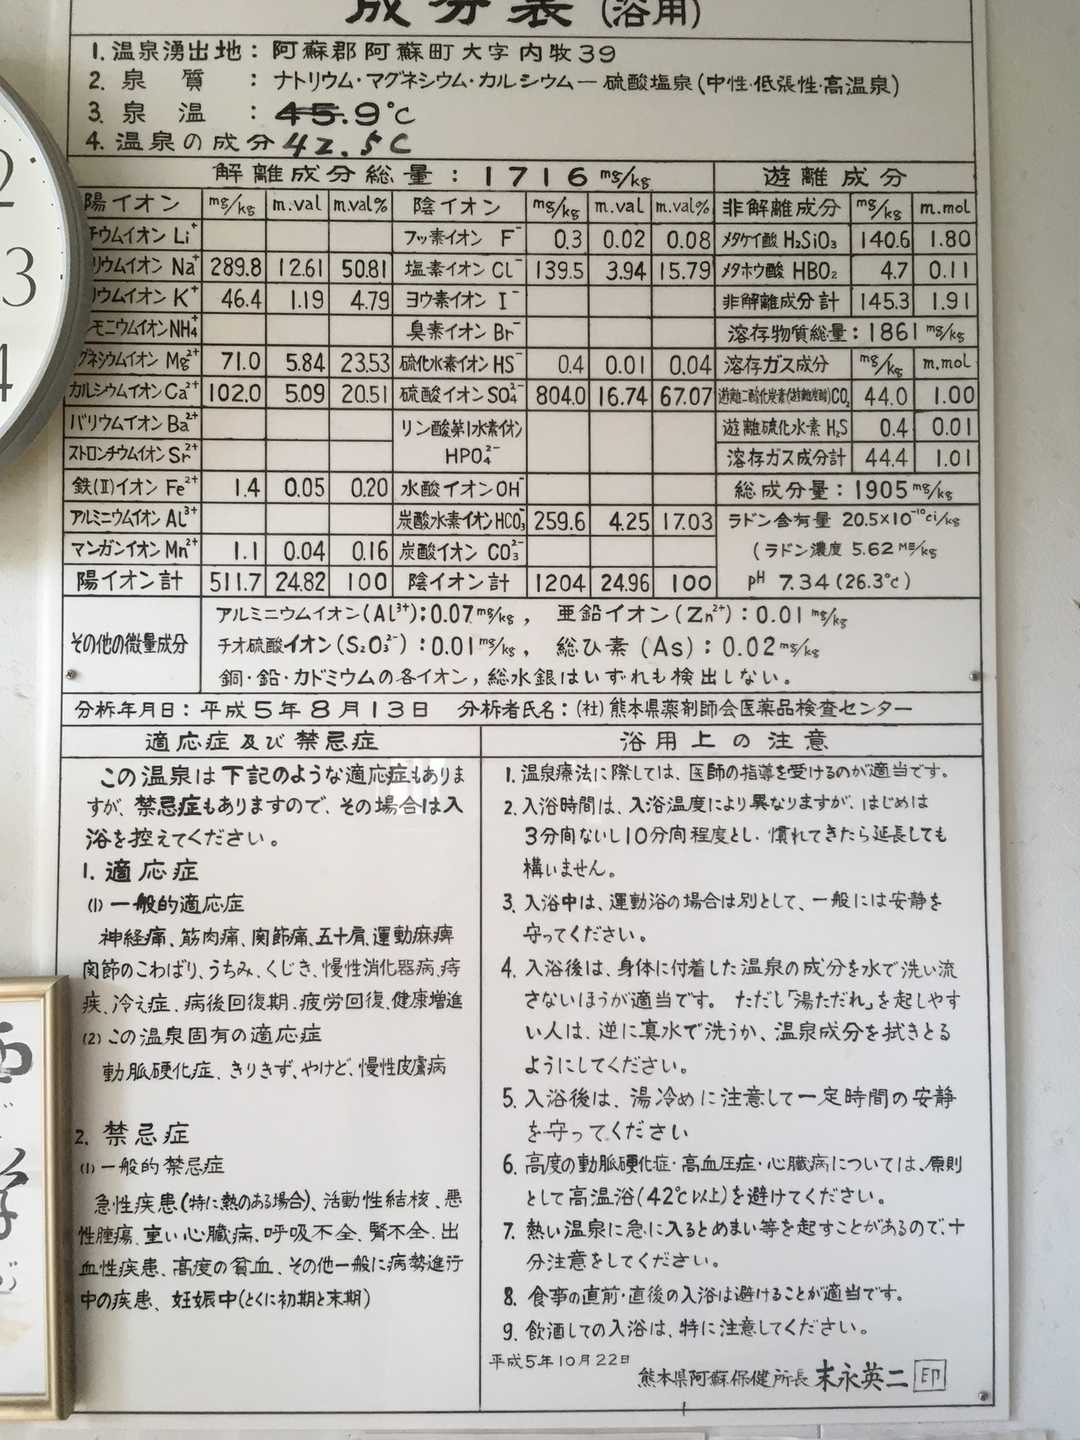 成分表(浴用)
1. 温泉湧出地: 阿蘇郡阿蘇町大字内牧39
2. 泉質: ナトリウム・マグネシウム・カルシウム―硫酸塩泉(中性・低張性・高温泉)
3. 泉温: 45.9℃
4. 温泉の成分 42.5C
解離成分総量: 1716 mg/kg 遊離成分
陽イオン mg/kg m.val m.val% 陰イオン mg/kg m.val m.val% 非解離成分 mg/kg m.mol
チウムイオン Li⁺ フッ素イオン F⁻ 0.3 0.02 0.08 メタケイ酸 H₂SiO₃ 140.6 1.80
リウムイオン Na⁺ 289.8 12.61 50.81 塩素イオン Cl⁻ 139.5 3.94 15.79 メタホウ酸 HBO₂ 4.7 0.11
リウムイオン K⁺ 46.4 1.19 4.79 ヨウ素イオン I⁻ 非解離成分計 145.3 1.91
モニウムイオン NH₄⁺ 臭素イオン Br⁻ 溶存物質総量: 1861 mg/kg
グネシウムイオン Mg²⁺ 71.0 5.84 23.53 硫化水素イオン HS⁻ 0.4 0.01 0.04 溶存ガス成分 mg/kg m.mol
カルシウムイオン Ca²⁺ 102.0 5.09 20.51 硫酸イオン SO₄²⁻ 804.0 16.74 67.07 遊離二酸化炭素(遊離炭酸)CO₂ 44.0 1.00
バリウムイオン Ba²⁺ リン酸第1水素イオン HPO₄²⁻ 遊離硫化水素 H₂S 0.4 0.01
ストロンチウムイオン Sr²⁺ 溶存ガス成分計 44.4 1.01
鉄(Ⅱ)イオン Fe²⁺ 1.4 0.05 0.20 水酸イオン OH⁻ 総成分量: 1905 mg/kg
アルミニウムイオン Al³⁺ 炭酸水素イオン HCO₃⁻ 259.6 4.25 17.03 ラドン含有量 20.5×10⁻¹⁰ci/kg
マンガンイオン Mn²⁺ 1.1 0.04 0.16 炭酸イオン CO₃²⁻ (ラドン濃度 5.62 ME/kg
陽イオン計 511.7 24.82 100 陰イオン計 1204 24.96 100 pH 7.34 (26.3℃)
その他の微量成分
アルミニウムイオン(Al³⁺); 0.07 mg/kg, 亜鉛イオン(Zn²⁺): 0.01 mg/kg
チオ硫酸イオン(S₂O₃²⁻): 0.01 mg/kg, 総ひ素(As): 0.02 mg/kg
銅・鉛・カドミウムの各イオン,総水銀はいずれも検出しない。
分析年月日: 平成5年8月13日 分析者氏名: (社)熊本県薬剤師会医薬品検査センター
適応症及び禁忌症
この温泉は下記のような適応症もありま
すが、禁忌症もありますので、その場合は入
浴を控えてください。
1. 適応症
(1) 一般的適応症
神経痛、筋肉痛、関節痛、五十肩、運動麻痺
関節のこわばり、うちみ、くじき、慢性消化器病、痔
疾、冷え症、病後回復期、疲労回復、健康増進
(2) この温泉固有の適応症
動脈硬化症、きりきず、やけど、慢性皮膚病
2. 禁忌症
(1) 一般的禁忌症
急性疾患(特に熱のある場合)、活動性結核、悪
性腫瘍、重い心臓病、呼吸不全、腎不全、出
血性疾患、高度の貧血、その他一般に病勢進行
中の疾患、妊娠中(とくに初期と末期)
浴用上の注意
1. 温泉療法に際しては、医師の指導を受けるのが適当です。
2. 入浴時間は、入浴温度により異なりますが、はじめは
3分間ないし10分間程度とし、慣れてきたら延長しても
構いません。
3. 入浴中は、運動浴の場合は別として、一般には安静を
守ってください。
4. 入浴後は、身体に付着した温泉の成分を水で洗い流
さないほうが適当です。ただし「湯ただれ」を起しやす
い人は、逆に真水で洗うか、温泉成分を拭きとる
ようにしてください。
5. 入浴後は、湯冷めに注意して一定時間の安静
を守ってください
6. 高度の動脈硬化症・高血圧症・心臓病については、原則
として高温浴(42℃以上)を避けてください。
7. 熱い温泉に急に入るとめまい等を起すことがあるので、十
分注意をしてください。
8. 食事の直前・直後の入浴は避けることが適当です。
9. 飲酒しての入浴は、特に注意してください。
平成5年10月22日
熊本県阿蘇保健所長 末永英二 印
2
3
4